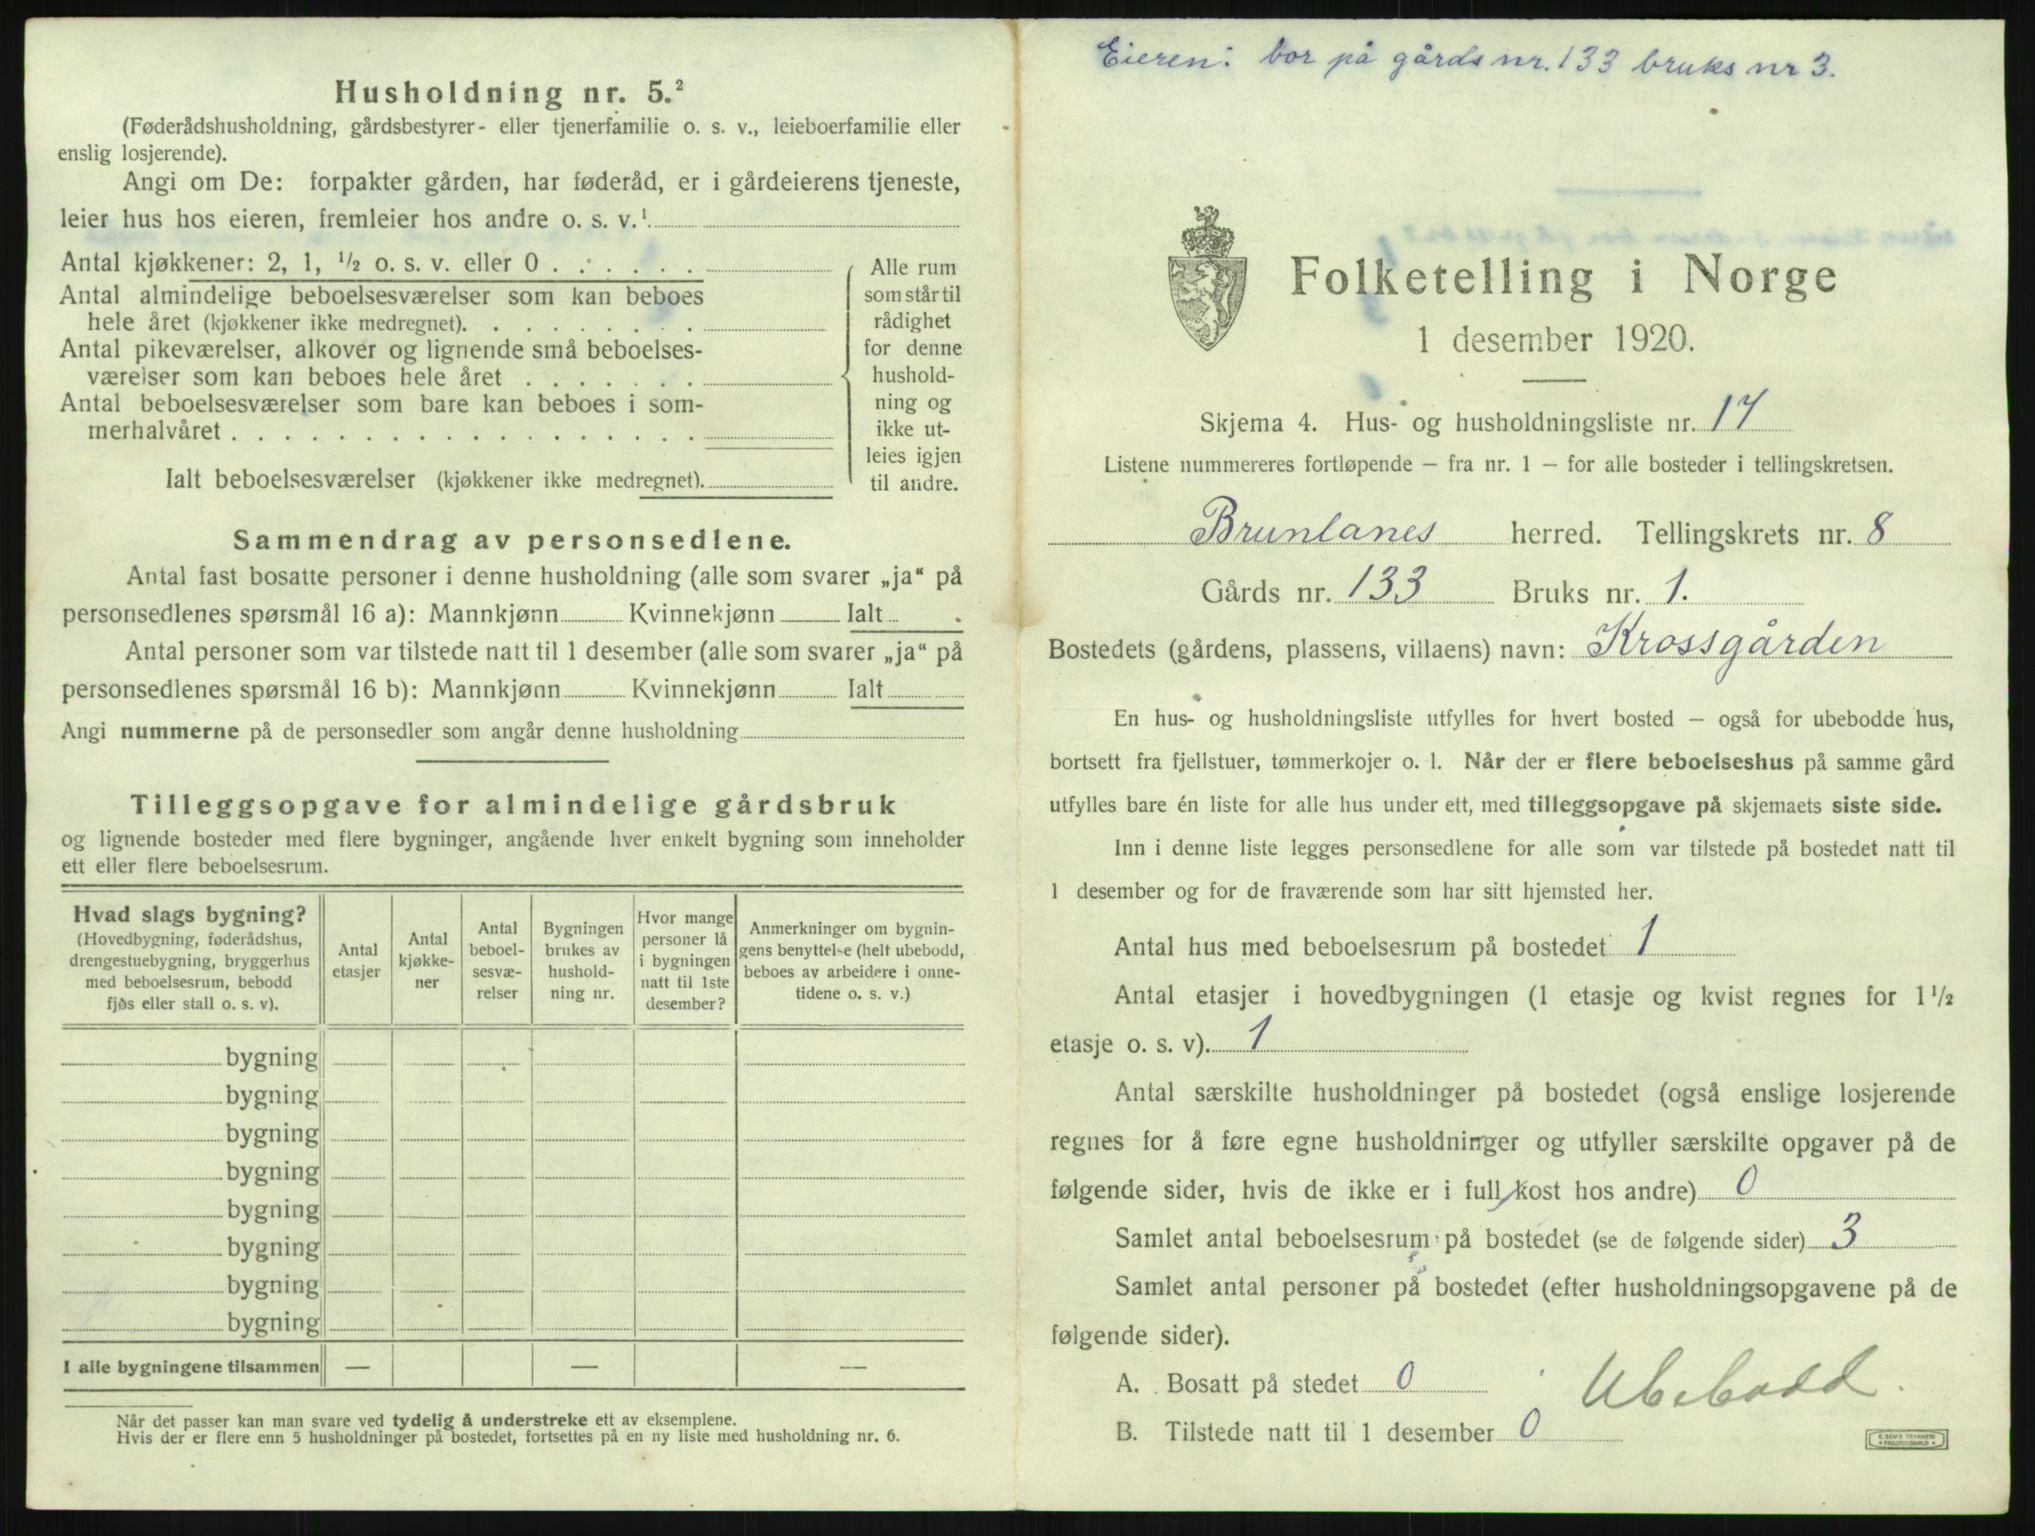 Husholdning nr. 5.²
(Føderådshusholdning, gårdsbestyrer- eller tjenerfamilie o. s. v., leieboerfamilie eller
enslig losjerende).
Angi om De: forpakter gården, har føderåd, er i gårdeierens tjeneste,
leier hus hos eieren, fremleier hos andre o. s. v.¹
Antal kjøkkener: 2, 1, ½ o. s. v. eller 0 . . . . . .
Antal almindelige beboelsesværelser som kan beboes
hele året (kjøkkener ikke medregnet). . . . . . . . .
Antal pikeværelser, alkover og lignende små beboelses-
værelser som kan beboes hele året . . . . . . .
Antal beboelsesværelser som bare kan beboes i som-
merhalvåret . . . . . . . . . . . . . . . . . .
Ialt beboelsesværelser (kjøkkener ikke medregnet).
Alle rum
som står til
rådighet
for denne
hushold-
ning og
ikke ut-
leies igjen
til andre.
Sammendrag av personsedlene.
Antal fast bosatte personer i denne husholdning (alle som svarer „ja“ på
personsedlenes spørsmål 16 a): Mannkjønn Kvinnekjønn Ialt
Antal personer som var tilstede natt til 1 desember (alle som svarer „ja“ på
personsedlenes spørsmål 16 b): Mannkjønn Kvinnekjønn Ialt
Angi nummerne på de personsedler som angår denne husholdning
Tilleggsopgave for almindelige gårdsbruk
og lignende bosteder med flere bygninger, angående hver enkelt bygning som inneholder
ett eller flere beboelsesrum.
Hvad slags bygning?
(Hovedbygning, føderådshus,
drengestuebygning, bryggerhus
med beboelsesrum, bebodd
fjøs eller stall o. s. v).
Antal
etasjer
Antal
kjøkke-
ner
Antal
beboel-
sesvæ-
relser
Bygningen
brukes av
hushold-
ning nr.
Hvor mange
personer lå
i bygningen
natt til 1ste
desember?
Anmerkninger om bygnin-
gens benyttelse (helt ubebodd,
beboes av arbeidere i onne-
tidene o. s. v.)
bygning
bygning
bygning
bygning
bygning
bygning
bygning
bygning
I alle bygningene tilsammen — — —
Når det passer kan man svare ved tydelig å understreke ett av eksemplene.
Hvis der er flere enn 5 husholdninger på bostedet, fortsettes på en ny liste med husholdning nr. 6.
Eieren: bor på gårds nr. 133 bruks nr 3.
Folketelling i Norge
1 desember 1920.
Skjema 4. Hus- og husholdningsliste nr. 17
Listene nummereres fortløpende — fra nr. 1 — for alle bosteder i tellingskretsen.
Brunlanes herred. Tellingskrets nr. 8
Gårds nr. 133 Bruks nr. 1.
Bostedets (gårdens, plassens, villaens) navn: Krossgården
En hus- og husholdningsliste utfylles for hvert bosted — også for ubebodde hus,
bortsett fra fjellstuer, tømmerkojer o. l. Når der er flere beboelseshus på samme gård
utfylles bare én liste for alle hus under ett, med tilleggsopgave på skjemaets siste side.
Inn i denne liste legges personsedlene for alle som var tilstede på bostedet natt til
1 desember og for de fraværende som har sitt hjemsted her.
Antal hus med beboelsesrum på bostedet 1
Antal etasjer i hovedbygningen (1 etasje og kvist regnes for 1 ½
etasje o. s. v). 1
Antal særskilte husholdninger på bostedet (også enslige losjerende
regnes for å føre egne husholdninger og utfyller særskilte opgaver på de
følgende sider, hvis de ikke er i full kost hos andre) 0
Samlet antal beboelsesrum på bostedet (se de følgende sider) 3
Samlet antal personer på bostedet (efter husholdningsopgavene på de
følgende sider).
A. Bosatt på stedet 0
Ubebodd.
B. Tilstede natt til 1 desember 0